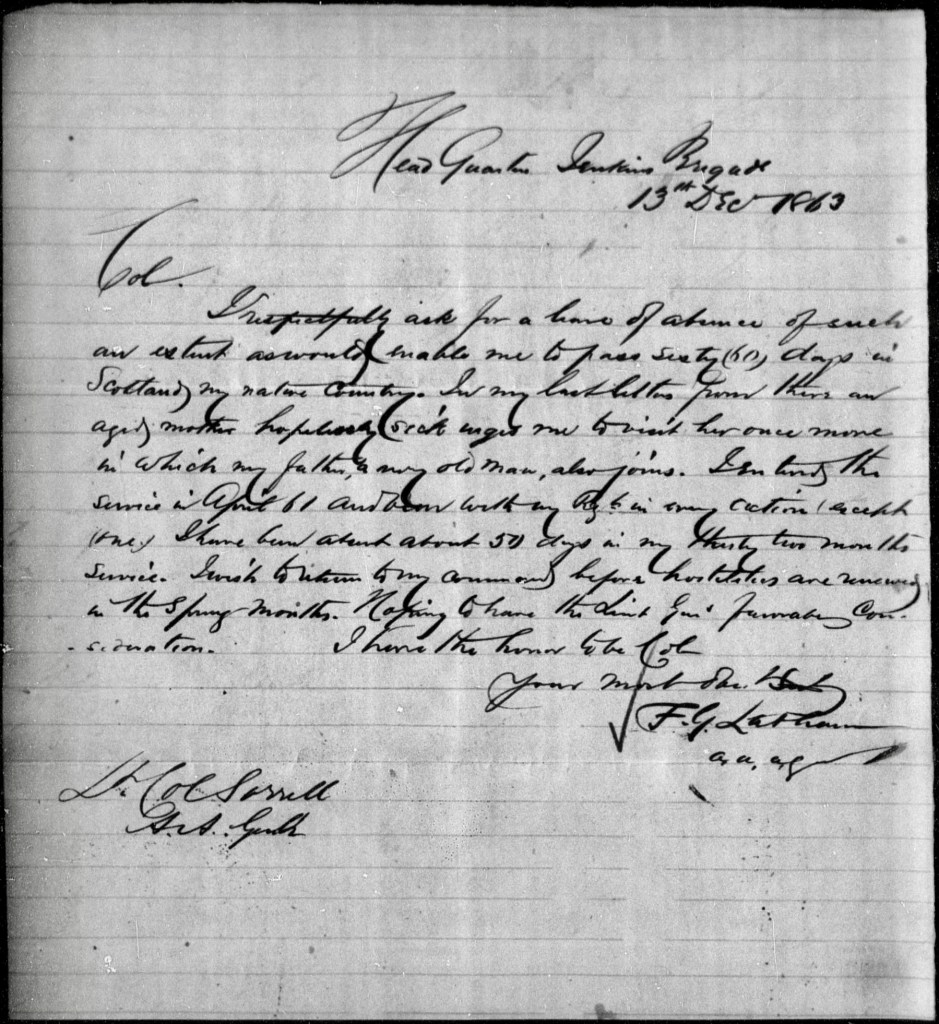 Head Quarters Jenkins Brigade
13th Dec 1863
Col.
I respectfully ask for a leave of absence of such
an extent as would enable me to pass sixty (60) days in
Scotland my native Country. In my last letters from there an
aged mother hopelessly sick urges me to visit her once more
in which my father, a very old man, also joins. I entered the
service in April 61 and been with my Regt in every action (except
one) I have been absent about 50 days in my thirty two months
service. I wish to return to my command before hostilities are renewed
in the Spring months. Hoping to have the Lieut Genl favorable Con-
- sideration. I have the honor to be Col
Your most obt Svt
F. G. Latham
a, a, a, g
Lt. Col Sorrell
A. A. Genl